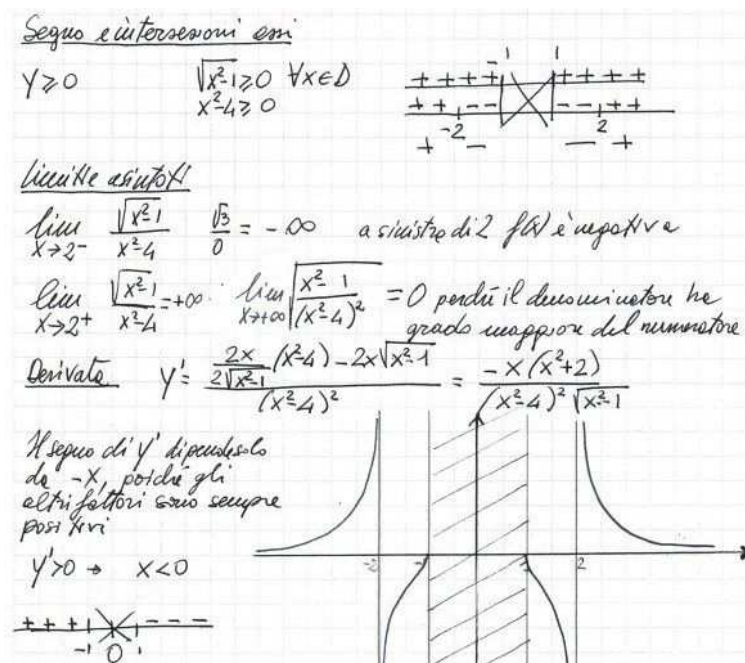 Segno e intersezioni assi
y ≥ 0 √x²-1 ≥ 0 ∀x∈D
x²-4 ≥ 0
-1 1
+ + + + + + + + +
+ + - - - - + +
-2 2
+ - - +
Limiti e asintoti
lim x→2⁻ √x²-1 / x²-4 √3/0 = -∞ a sinistra di 2 f(x) è negativa
lim x→2⁺ √x²-1 / x²-4 = +∞ lim x→+∞ √(x²-1 / (x²-4)²) = 0 perché il denominatore ha
grado maggiore del numeratore
Derivata y' = (2x / 2√x²-1 (x²-4) - 2x√x²-1) / (x²-4)² = -x(x²+2) / (x²-4)² √x²-1
Il segno di y' dipende solo
da -x, poiché gli
altri fattori sono sempre
positivi
y'>0 → x<0
-2 -1 1 2
+ + + - - -
-1 0 1